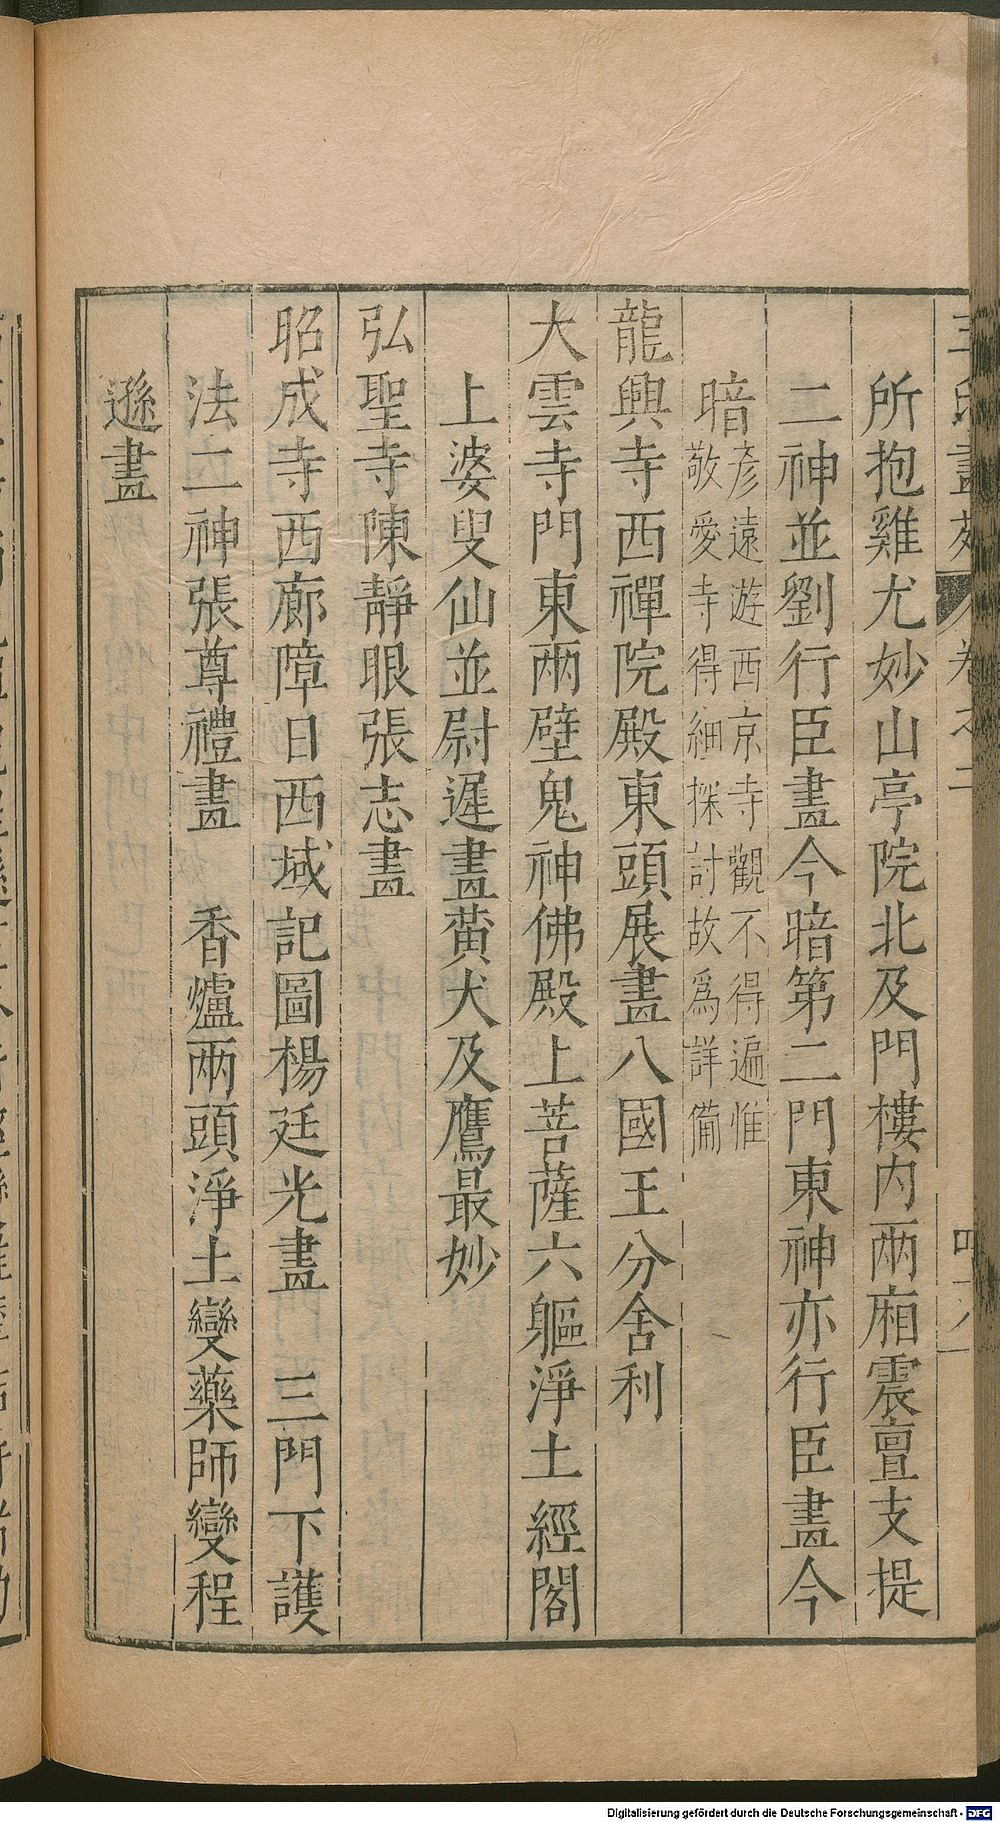 所抱雞尤妙山亭院北及門樓内兩廂震亶支提
二神並劉行臣畫今暗第二門東神亦行臣畫今
暗彦遠遊西京寺觀不得遍惟
敬愛寺得細探討故爲詳備
龍興寺西禪院殿東頭展畫八國王分舍利
大雲寺門東兩壁鬼神佛殿上菩薩六軀淨土經閣
上婆叟仙並尉遲畫黄犬及鷹最妙
弘聖寺陳靜眼張志畫
昭成寺西廊障日西域記圖楊廷光畫 三門下護
法二神張尊禮畫 香爐兩頭淨土變藥師變程
遜畫
Digitalisierung gefördert durch die Deutsche Forschungsgemeinschaft - DFG